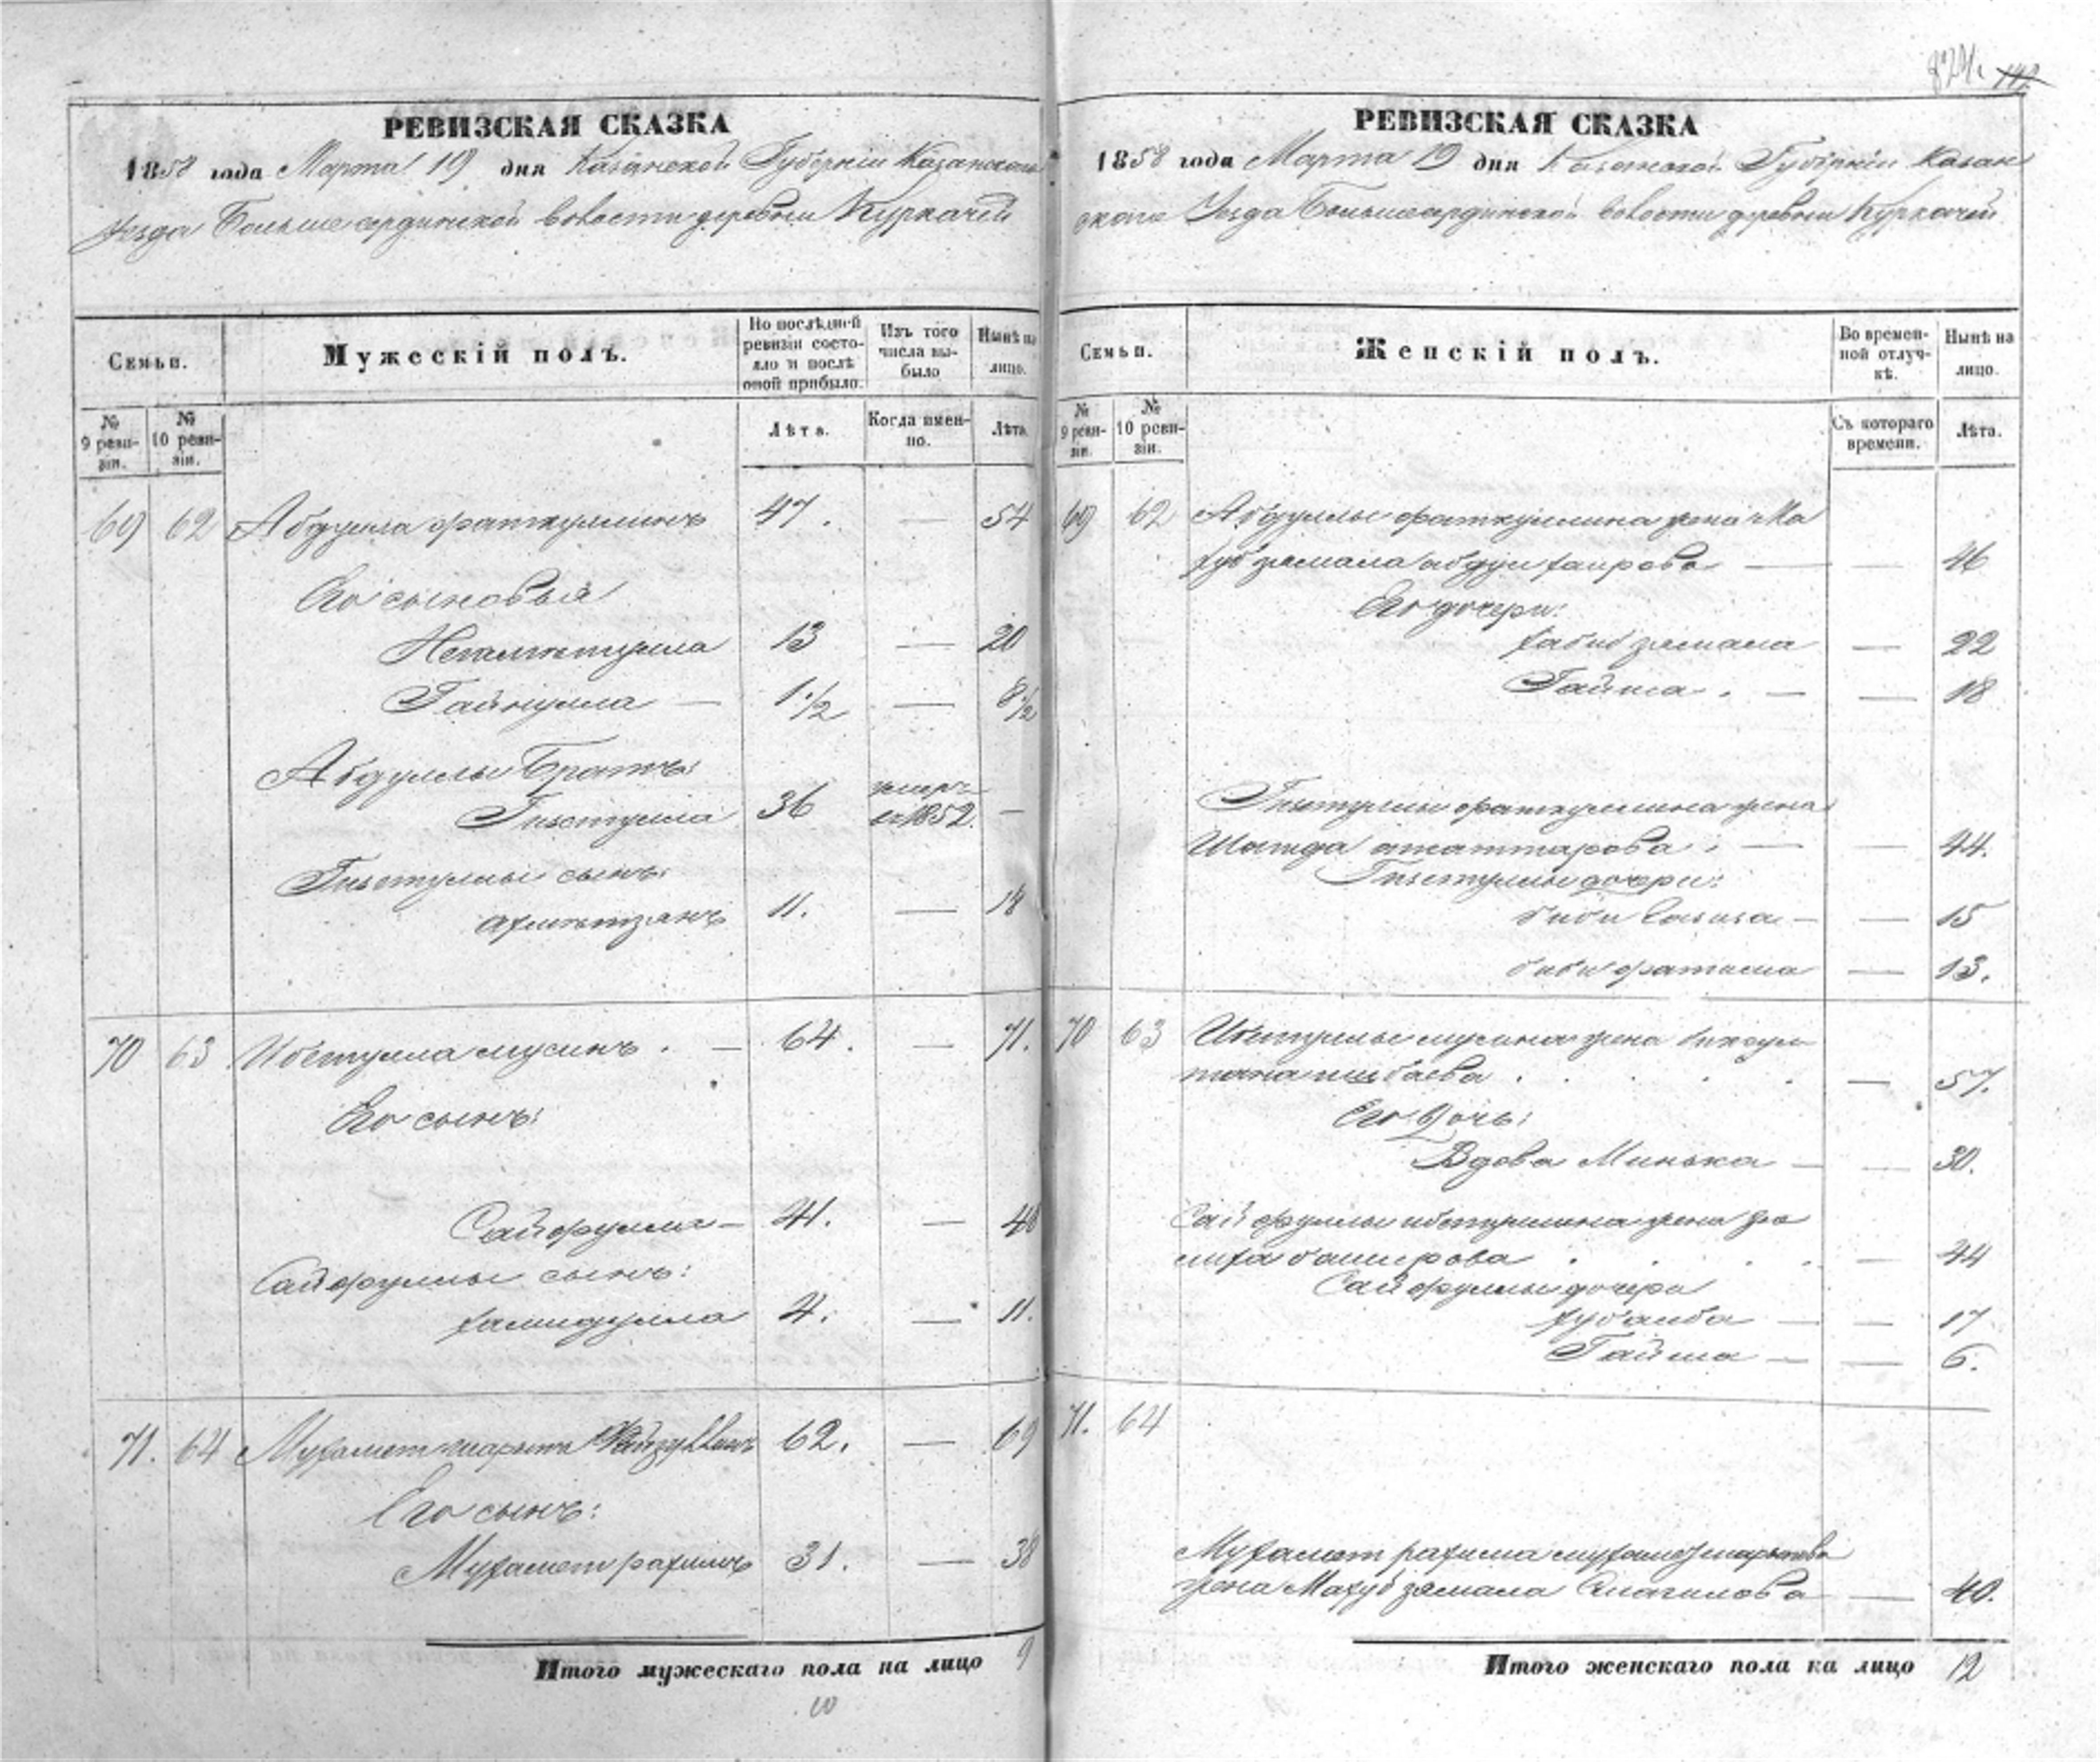 РЕВИЗСКАЯ СКАЗКА
1858 года Марта 19 дня Казанской Губерніи Казанскаго
Уезда Большесердинской волости деревни Куркачей
Семьи.
Мужескій полъ.
По послѣдней ревизіи состояло и послѣ оной прибыло.
Изъ того числа выбыло
Нынѣ на лицо.
№ 9 ревизіи.
№ 10 ревизіи.
Лѣта.
Когда именно.
Лѣта.
69 62 Абдулла фаткуллинъ 47. — 54
Его сыновья
Негаметулла 13 — 20
Гайнулла — 1 1/2 — 8 1/2
Абдуллы Братъ:
Гизетулла 36 умеръ в 1852. —
Гизетуллы сынъ:
ахметзянъ 11. — 18
70 63 Ибетулла мусинъ. — 64. — 71.
Его сынъ:
Сайфулла — 41. — 48
Сайфуллы сынъ:
хамидулла 4. — 11.
71. 64 Мухаметшарыпъ 62. — 69
Его сынъ:
Мухаметрахимъ 31. — 38
Итого мужескаго пола на лицо 9
10
РЕВИЗСКАЯ СКАЗКА
1858 года Марта 19 дня Казанской Губерніи Казан
скаго Уезда Большесердинской волости деревни Куркачей
Семьи.
Женскій полъ.
Во временной отлучкѣ.
Нынѣ на лицо.
№ 9 ревизіи.
№ 10 ревизіи.
Съ котораго времени.
Лѣта.
69 62 Абдуллы фаткуллина жена Ма
хубзямала абдулхаирова — — 46
Его дочери:
хабибзямала — 22
Гайша. — — 18
Гизетуллы фаткуллина жена
саттарова. — — 44.
Гизетуллы дочери:
биби — — 15
биби фатима — 13.
70 63 Ибетуллы мусина жена биксул
тана . . . . — 57.
Его дочь:
Вдова Минька — — 30.
Сайфуллы ибетуллина жена За
лиха баширова . . . . — 44
Сайфуллы дочери
— — 17
Гайша — — 6.
71. 64
Мухаметрахима мухаметшарыпова
жена Махубзямала Смагилова — 40.
Итого женскаго пола на лицо 12